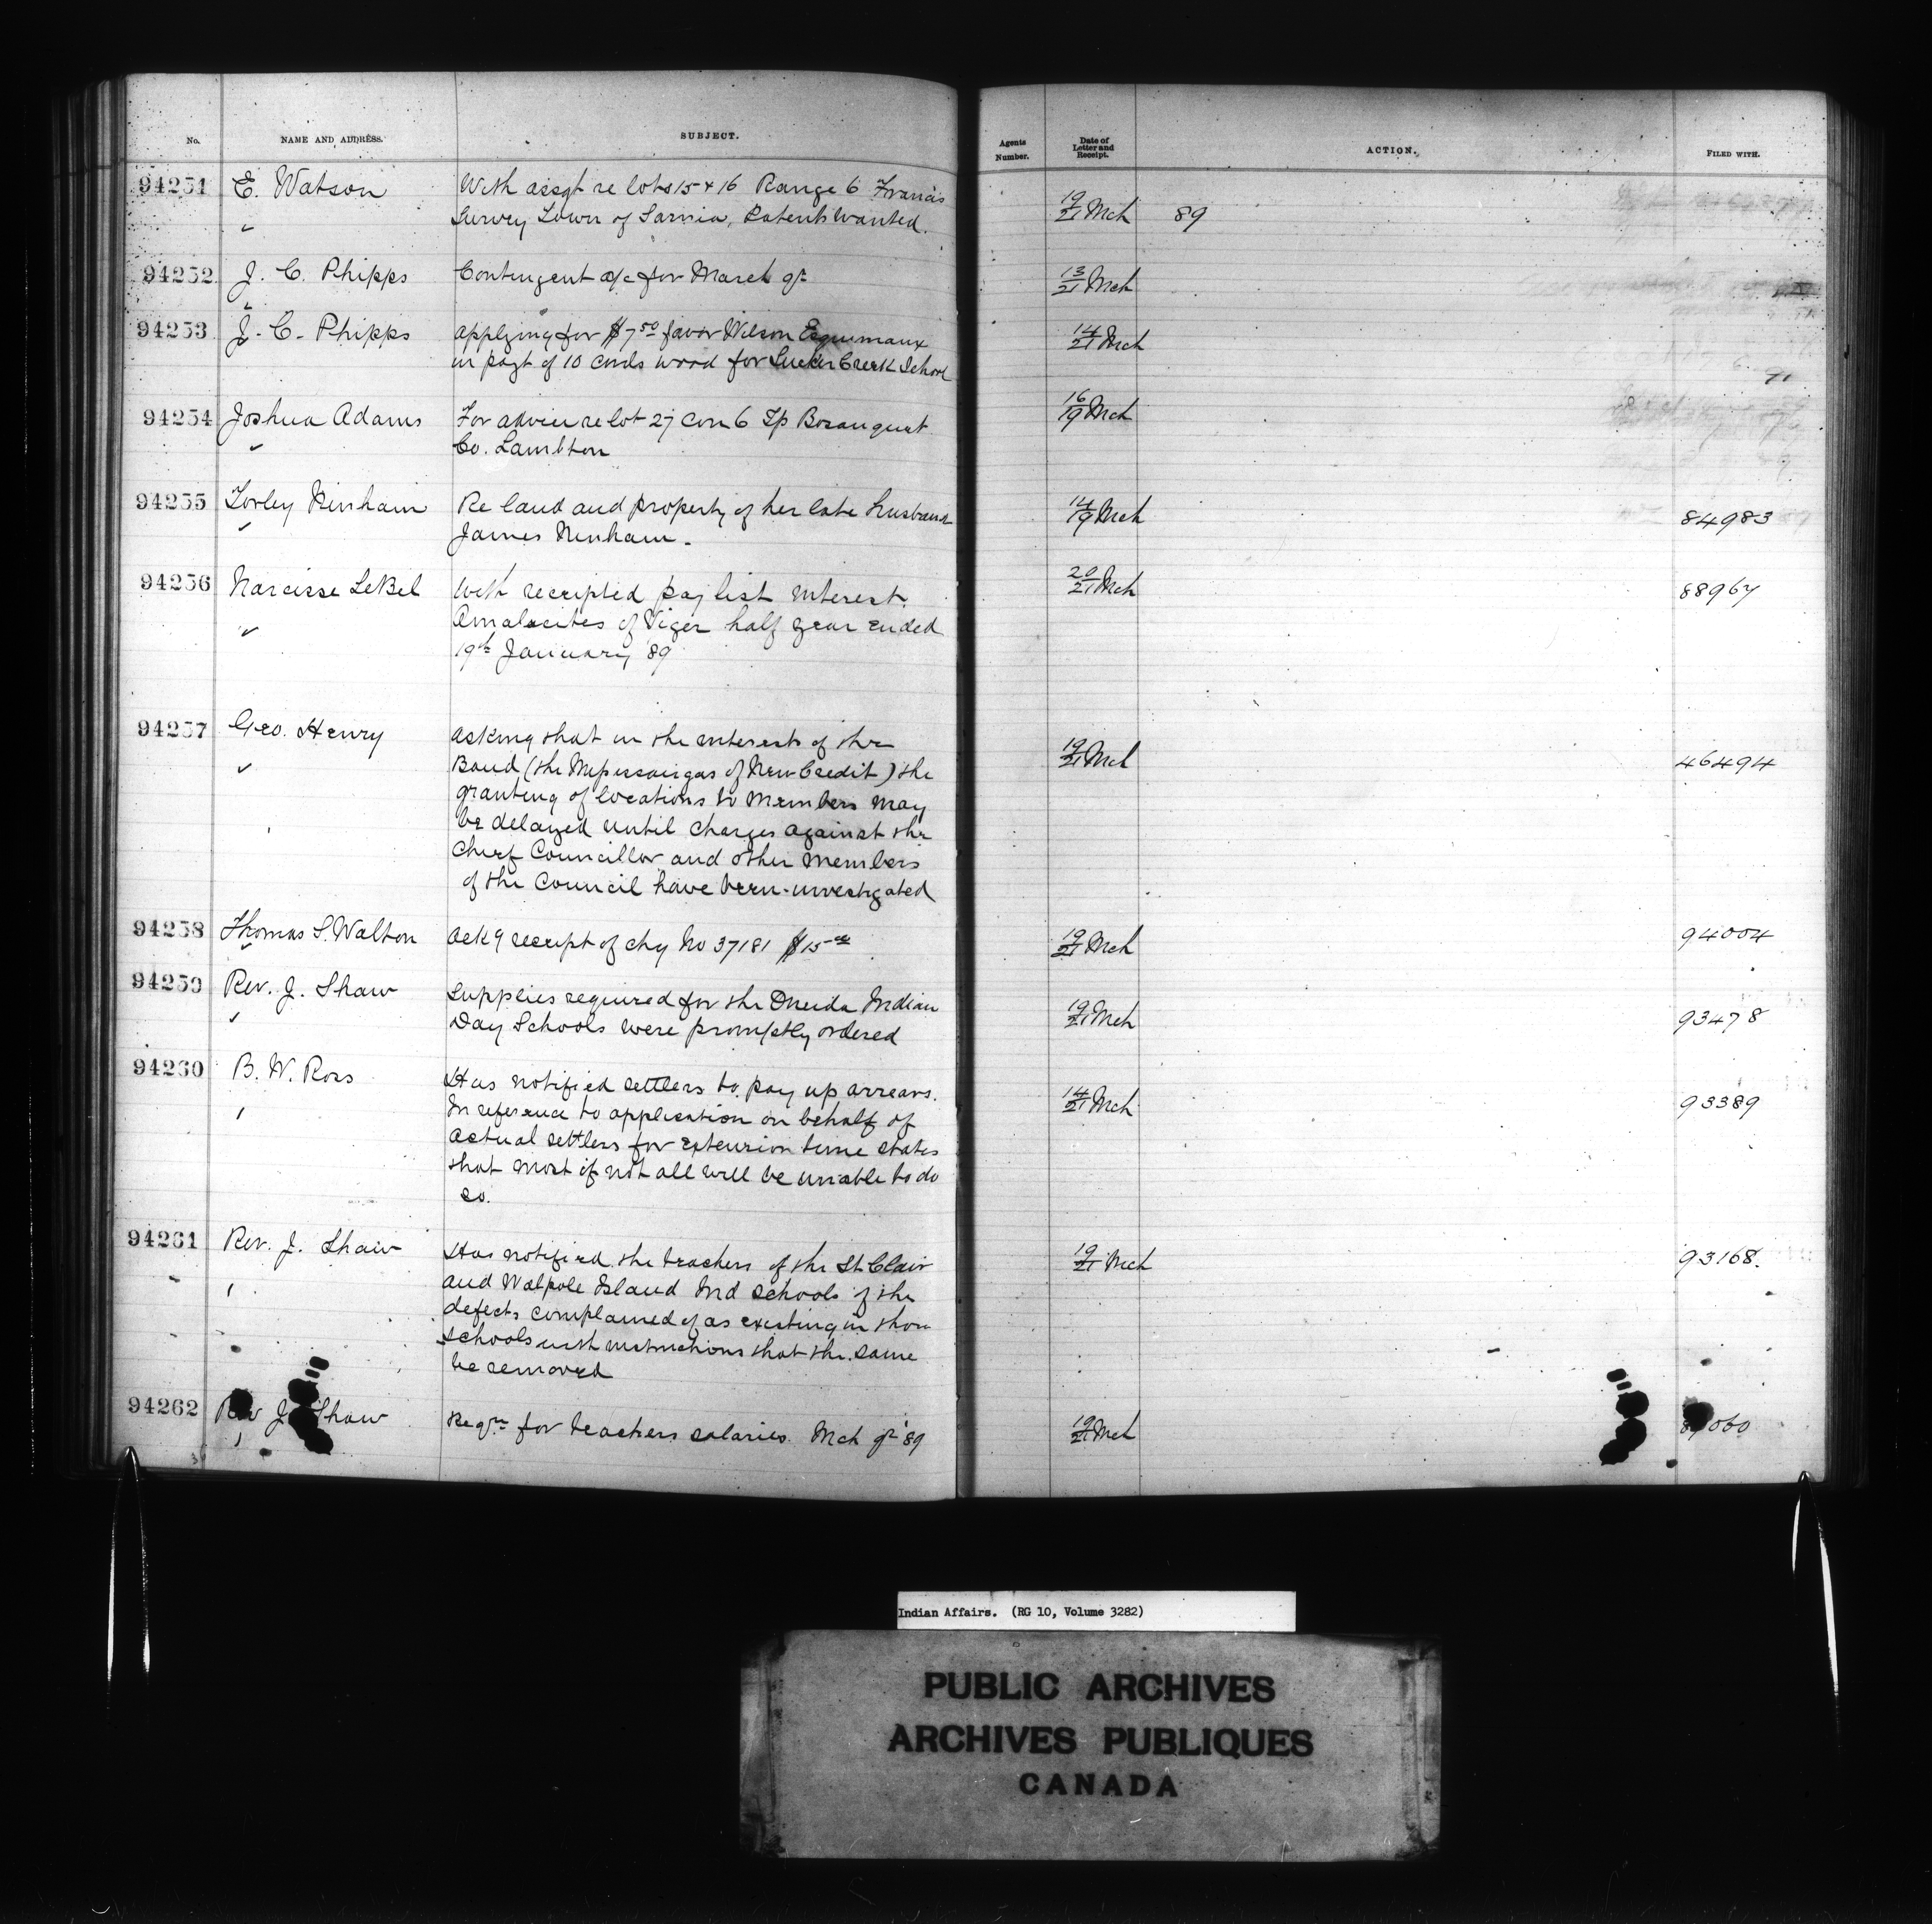 No. NAME AND ADDRESS. SUBJECT. Agents Number. Date of Letter and Receipt. ACTION. FILED WITH.
94251 E. Watson With assgt re lots 15 & 16 Range 6 Francis 19/21 Mch 89
Survey Town of Sarnia, Patents wanted.
94252 J. C. Phipps Contingent a/c for March qr 13/21 Mch
94253 J. C. Phipps Applying for $7.50 favor Wilson Esquimaux 14/21 Mch
in payt of 10 cords wood for Sucker Creek School
94254 Joshua Adams For advice re lot 27 Con 6 Tp Bosanquet 16/19 Mch
Co. Lambton
94255 Ninham Re land and property of her late husband 14/19 Mch 84983
James Ninham.
94256 Narcisse LeBel With receipted pay list interest. 20/21 Mch 88967
Amalecites of Viger half year ended
19th January '89
94257 Geo. Henry Asking that in the interests of the 19/21 Mch 46494
Band (the Missisaugas of New Credit) the
granting of locations to members may
be delayed until charges against the
Chief Councillor and other members
of the Council have been investigated
94258 Thomas S. Walton Ackg receipt of chq No 37181 $15.00 19/21 Mch 94004
94259 Rev. J. Shaw Supplies required for the Oneida Indian 19/21 Mch 93478
Day Schools were promptly ordered
94260 B. W. Ross Has notified settlers to pay up arrears. 14/21 Mch 93389
In reference to application on behalf of
actual settlers for extension time states
that most if not all will be unable to do
so.
94261 Rev. J. Shaw Has notified the teachers of the St. Clair 19/21 Mch 93168.
and Walpole Island Ind schools of the
defects complained of as existing in those
schools with instructions that the same
be removed
94262 Rev J. Shaw Reqn for teachers salaries Mch qr '89 19/21 Mch
Indian Affairs. (RG 10, Volume 3282)
PUBLIC ARCHIVES
ARCHIVES PUBLIQUES
CANADA